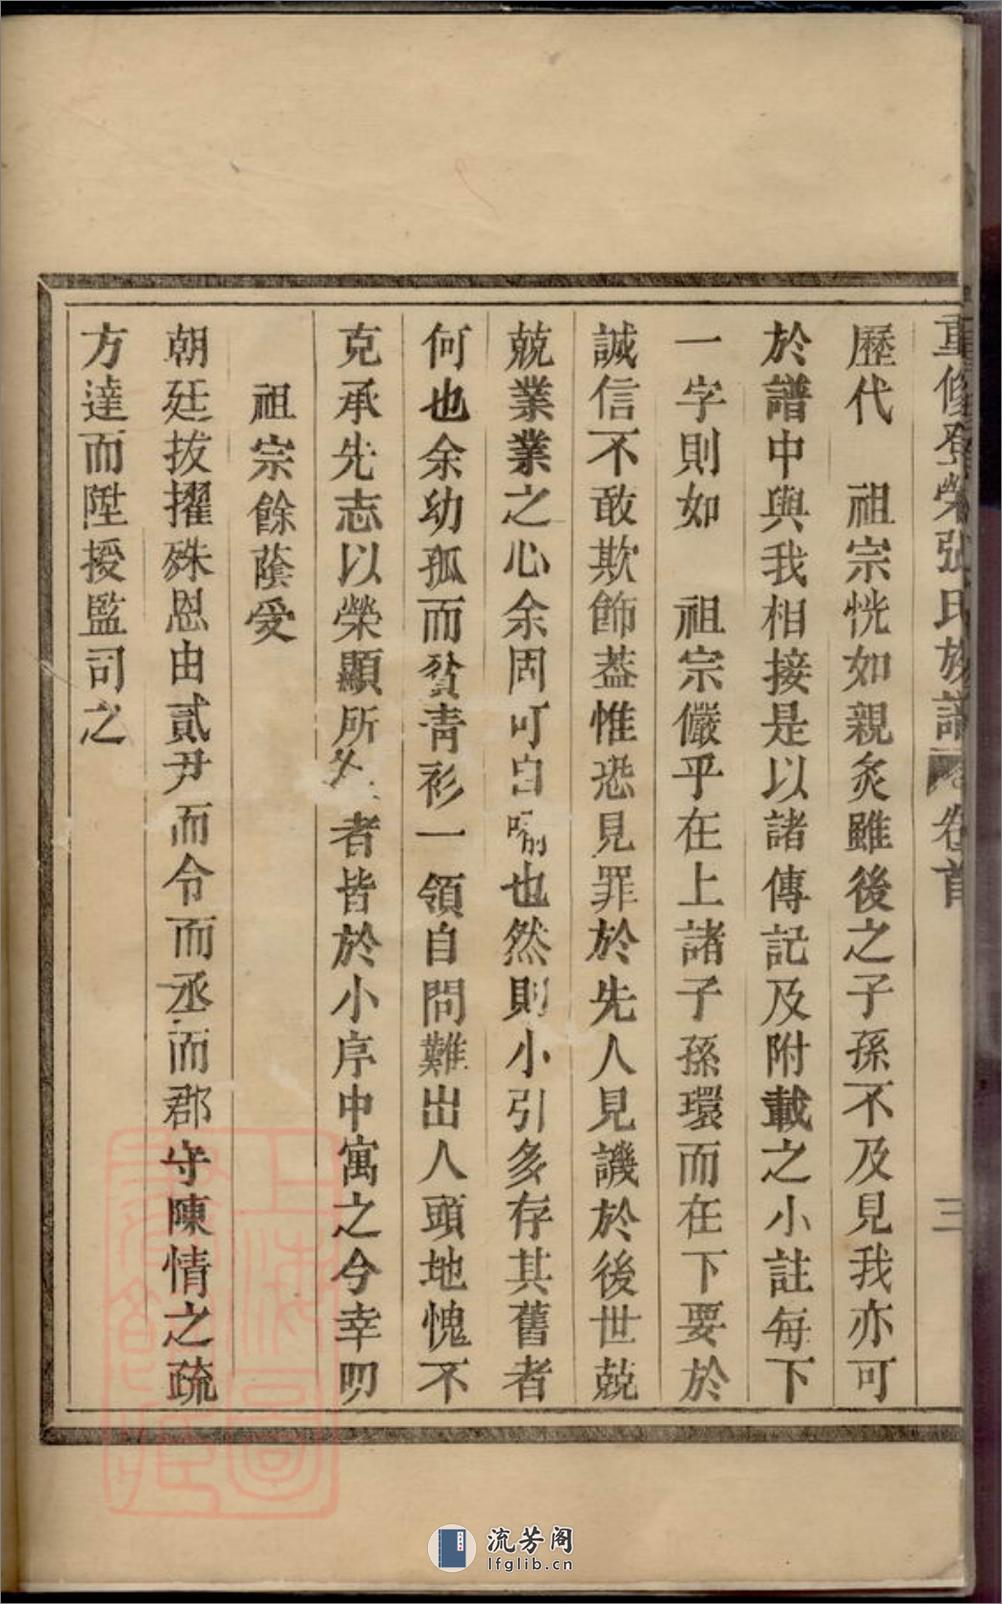 重修登榮張氏族譜 卷首 三
歷代　祖宗恍如親炙雖後之子孫不及見我亦可
於譜中與我相接是以諸傳記及附載之小註每下
一字則如　祖宗儼乎在上諸子孫環而在下要於
誠信不敢欺飾葢惟恐見罪於先人見譏於後世兢
兢業業之心余固可自喻也然則小引多存其舊者
何也余幼孤而貧青衫一領自問難出人頭地愧不
克承先志以榮顯所生者皆於小序中寓之今幸叨
祖宗餘蔭受
朝廷拔擢殊恩由貳尹而令而丞而郡守陳情之疏
方達而陞授監司之
上海圖書館藏
流芳阁
lfglib.cn